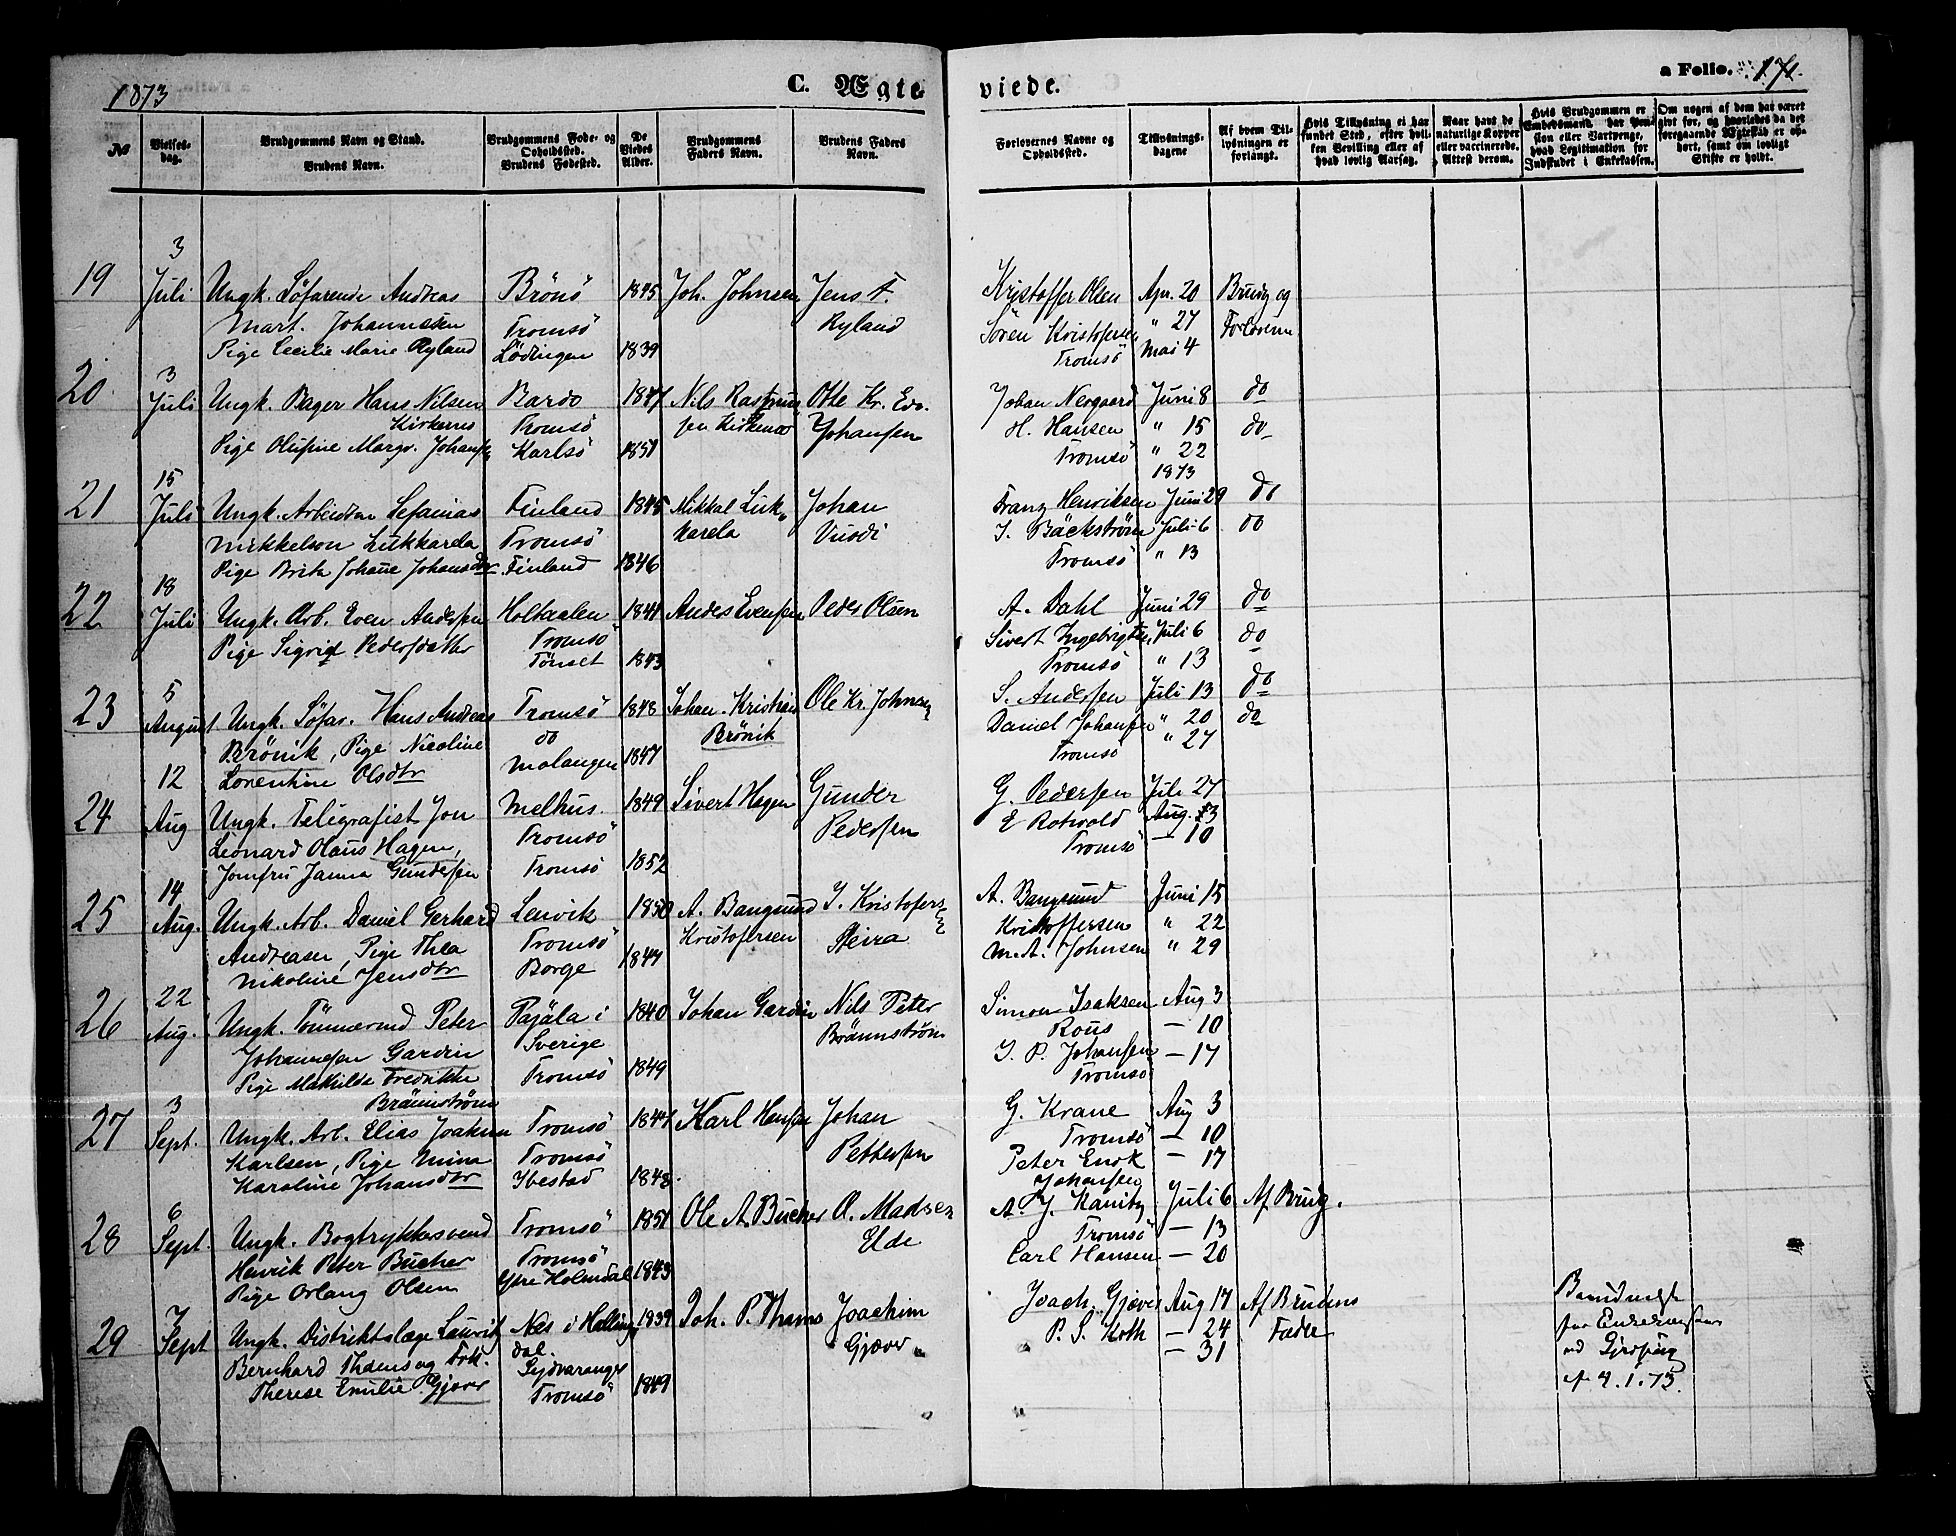 1873
C. Ægte
viede.
a Folio. 171.
№
Vielses-dag.
Brudgommens Navn og Stand.
Brudens Navn.
Brudgommens Føde- og Opholdssted.
Brudens Fødested.
De Viedes Alder.
Brudgommens Faders Navn.
Brudens Faders Navn.
Forlovernes Navne og Opholdssted.
Tillysnings-dagene
Af hvem Tillysningen er forlangt.
Hvis Tillysning ei har fundet Sted, efter hvilken Bevilling eller af hvad lovlig Aarsag.
Naar havt de naturlige Kopper eller vaccinerede. Attest derom.
Hvis Brudgommen er Embedsmand, har Pension eller Vartpenge, hvad Legitimation for Indskudet i Enkekassen.
Om nogen af dem har været gift før, og hvorledes da det foregaaende Ægteskab er ophørt, samt om lovligt Skifte er holdt.
19 3 Juli Ungk. Söfarende Andreas Brönö 1845 Joh. Johnsen Jens F. Kristoffer Olsen Apr. 20 Brudg og
Mart. Johannessen Tromsö Ryland Sören Kristofersen " 27 Forloverne
Pige Cecilie Marie Ryland Lödingen 1839 Tromsö Mai 4
20 3 Juli Ungk. Bager Hans Nilsen Bardo 1847 Nils Rastrup Otte Kr. Edv. Johan Neegaard Juni 8 do
Kirknes Tromsö sen Johansen H. Hansen " 15 do
Pige Olufine Margr. Johansen Karlsö 1851 Tromsö " 22
1873
21 15 Juli Ungk. Arbeidsm Sefanias Finland 1845 Mikkal Luk Johan Franz Henriksen Juni 29 do
Mikkelson Lukkarela Tromsö karela Vuodi I. Bäckström Juli 6 do
Pige Brita Johane Johansdtr. Finland 1846 Tromsö " 13
22 18 Juli Ungk. Arb. Even Andersen Holtaalen 1841 Anders Evensen Peder Olsen A. Dahl Juni 29 do
Pige Sigrid Pedersdatter Tromsö Sivert Ingebrigtsen Juli 6 do
Tönset 1843 Tromsö " 13
23 5 August Ungk. Söfar. Hans Andreas Tromsö 1848 Johan Kristian Ole Kr. Johnsen S. Andersen Juli 13 do
Brönik, Pige Nicoline do Brönik Daniel Johansen " 20 do
Lorentine Olsdtr Malangen 1847 Tromsö " 27
24 12 Aug Ungk. Telegrafist Jon Melhus 1849 Sivert Hagen Gunder G. Pedersen Juli 27
Leonard Olaus Hagen, Tromsö Pedersen E Rotvold Aug. 3
Jomfru Janna Gundersen Tromsö 1852 Tromsö — 10
25 14 Aug. Ungk. Arb. Daniel Gerhard Lenvik 1850 A. Bangsund J. Kristofers A. Bangsund Juni 15
Andreasen, Pige Thea Tromsö Kristofersen Kristoffersen " 22
Nikoline Jensdtr Borge 1847 M. A. Johnsen " 29
26 22 Aug. Ungk. Tömmermd Peter Pajäla i 1840 Johan Gardin Nils Peter Simon Isaksen Aug 3
Johannesen Gardin Sverige Brännström Rous — 10
Pige Mathilde Fredrikke Tromsö 1849 J. P. Johansen — 17
Brännström Tromsö
27 3 Sept. Ungk. Arb. Elias Joakim Tromsö 1847 Karl Hansen Johan G. Krane Aug 3
Karlsen, Pige Mina Tromsö Pettersen Tromsö — 10
Karoline Johansdtr Ibestad 1848. Peter Enok — 17
Johansen
28 6 Sept. Ungk. Bogtrykkersvend Tromsö 1851 Ole A Bucher O. Madsen A. J. Kanitz Juli 6 Af Brudg.
Henrik Peter Bucher Tromsö Elde Tromsö — 13
Pige Orlang Olsen Ytre Holmedal 1843 Carl Hansen — 20
29 7 Sept Ungk. Distriktslæge Lauritz Næs i Halling 1839 Joh. P. Thams Joachim Joach. Gjæver Aug 17 Af Brudens
Bernhard Thams og Frk. dal. Gjæver P. S. Koth — 24 Fader
Therese Emilie Gjæver Sydvaranger — 31
Tromsö 1849